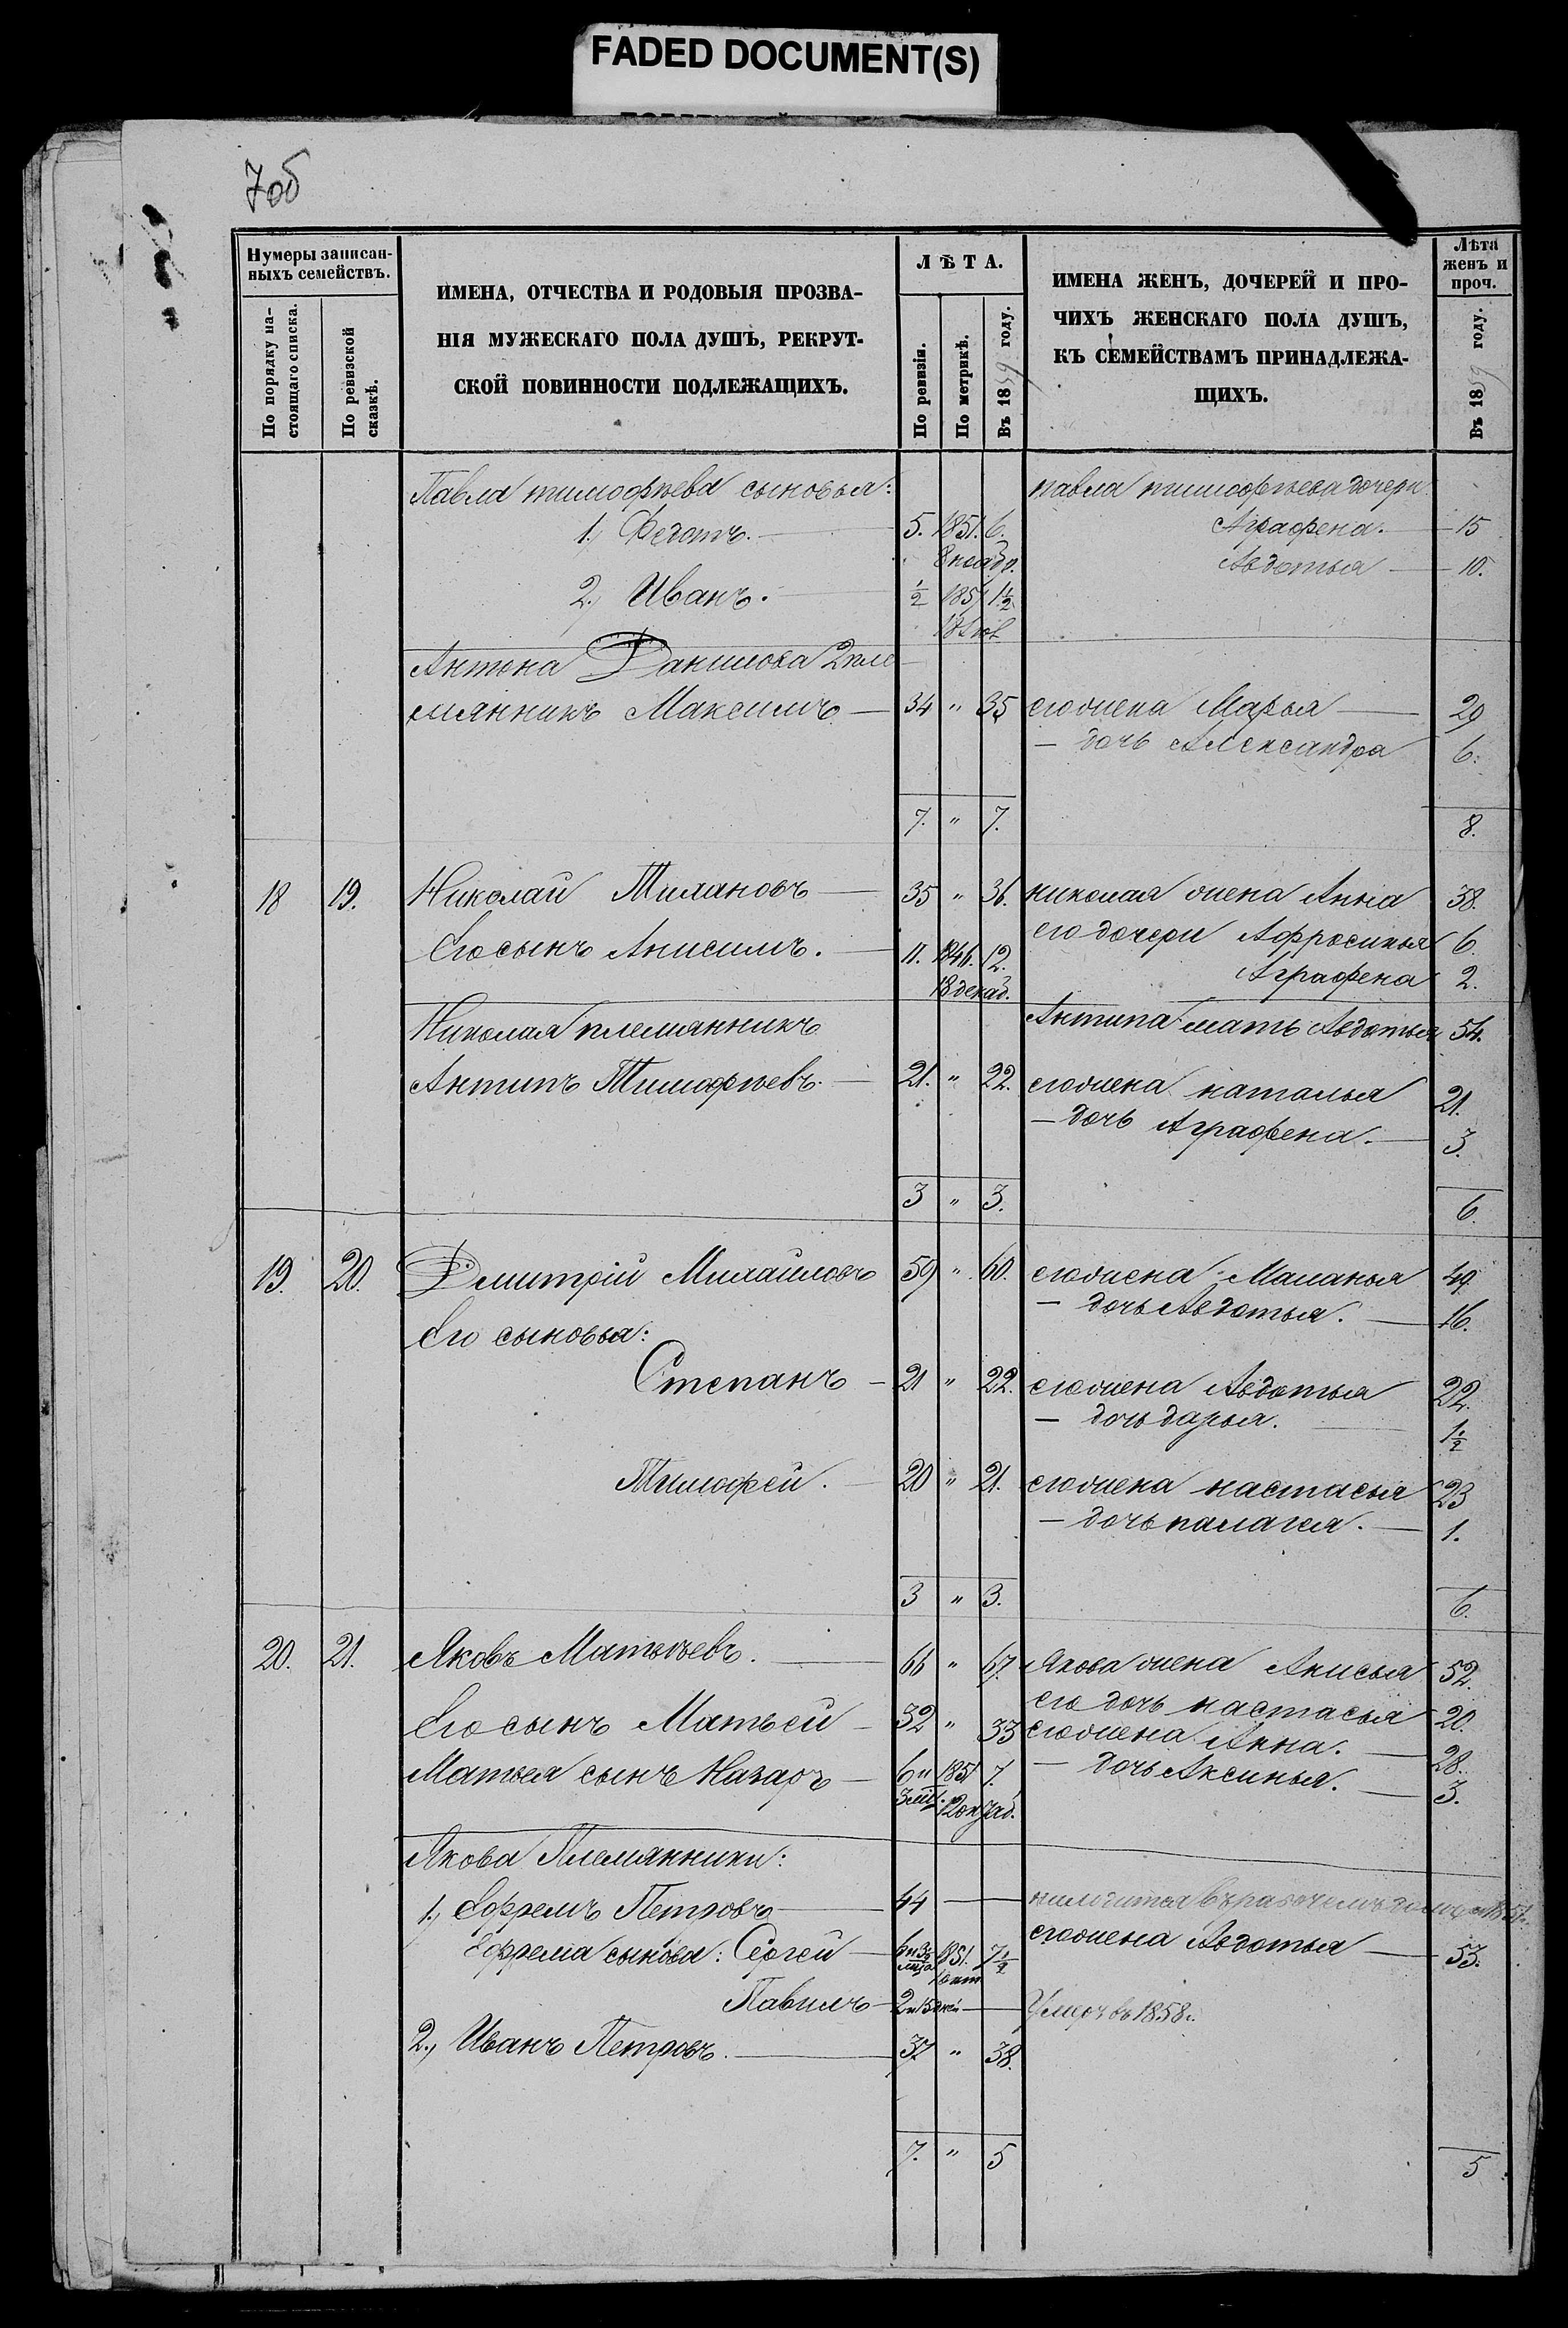 FADED DOCUMENT(S)
7об
Нумеры записан-
ныхъ семействъ.
По порядку на-
стоящаго списка.
По ревизской
сказкѣ.
ИМЕНА, ОТЧЕСТВА И РОДОВЫЯ ПРОЗВА-
НІЯ МУЖЕСКАГО ПОЛА ДУШЪ, РЕКРУТ-
СКОЙ ПОВИННОСТИ ПОДЛЕЖАЩИХЪ.
ЛѢТА.
По ревизіи.
По метрикѣ.
Въ 1859 году.
ИМЕНА ЖЕНЪ, ДОЧЕРЕЙ И ПРО-
ЧИХЪ ЖЕНСКАГО ПОЛА ДУШЪ,
КЪ СЕМЕЙСТВАМЪ ПРИНАДЛЕЖА-
ЩИХЪ.
Лѣта
женъ и
проч.
Въ 1859 году.
Павла тимофѣева сыновья: павла тимофѣева дочери
1, Федотъ. 5. 1851. 6. Аграфена. 15
Авдотья 10.
2, Иванъ. ½ 1857 1½
Антона Данилова 2 пле
мянникъ Максимъ 34 " 35 его жена Марья 29
— дочь Александра 6.
7. " 7. 8.
18 19. Николай Тихановъ 35 " 36. николая жена Анна 38.
его дочери Афросинья 6.
Его сынъ Анисимъ. 11. 1846. 12. Аграфена 2.
18 декаб.
Николая племянникъ Антипа мать Авдотья 54.
Антипъ Тимофѣевъ. 21. " 22. его жена наталья 21.
— дочь Аграфена. 3.
3 " 3. 6.
19. 20. Дмитрій Михайловъ 59 " 60. его жена Маланья 49.
— дочь Авдотья. 16.
Его сыновья:
Степанъ 21 " 22. его жена Авдотья 22.
— дочь дарья. 1½
Тимофей. 20 " 21. его жена настасья 23
— дочь палагея. 1.
3 " 3. 6.
20. 21. Яковъ Матвѣевъ. 66 " 67. Якова жена Анисья 52.
его дочь настасья 20.
Его сынъ Матвей 32 " 33 его жена Анна. 28.
Матвея сынъ Назаръ 6 и 1851 7. — дочь Аксинья. 3.
Якова Племянники:
1, Ефремъ Петровъ 44
его жена Авдотья 53.
Ефрема сынова: Сергей 1851. 7½
Павилъ Умеръ въ 1858 г.
2, Иванъ Петровъ. 37 " 38.
7. " 5 5